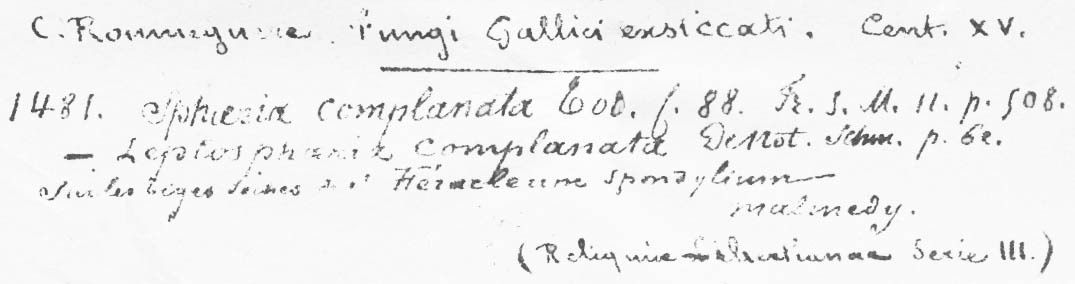 C. Roumeguere. Fungi Gallici exsiccati. Cent. XV.
1481. Sphæria complanata Tod. f. 88. Fr. S. M. 11. p. 508.
— Leptosphæria complanata DeNot. Schm. p. 62.
Sur les tiges seines d'Héracleum spondylium
malmedy.
(Reliquiæ Libertianae Serie III.)